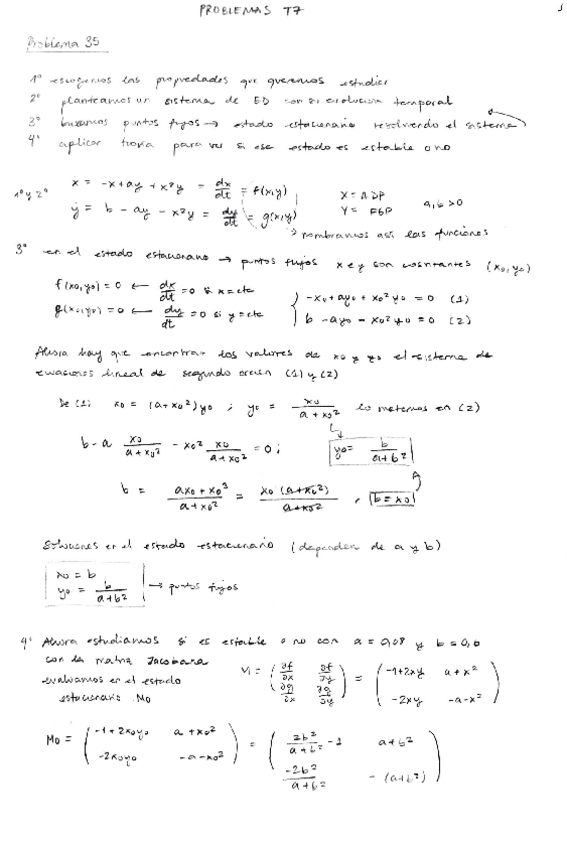 PROBLEMAS T7
Problema 35
1º escogemos las propiedades que queremos estudiar
2º planteamos un sistema de ED con su evolución temporal
3º buscamos puntos fijos → estado estacionario resolviendo el sistema
4º aplicar teoría para ver si ese estado es estable o no
1º y 2º ẋ = -x+ay+x²y = dx/dt = f(x,y) X = ADP
ẏ = b - ay - x²y = dy/dt = g(x,y) Y = F6P a,b >0
→ nombramos así las funciones
3º en el estado estacionario → puntos fijos x e y son constantes (x0,y0)
f(x0,y0) = 0 ← dx/dt = 0 si x=cte { -x0+ay0+x0²y0 = 0 (1)
g(x0,y0) = 0 ← dy/dt = 0 si y=cte b - ay0 - x0²y0 = 0 (2)
Ahora hay que encontrar los valores de x0 y y0 el sistema de
ecuaciones lineal de segundo orden (1) y (2)
De (1): x0 = (a+x0²)y0 ; y0 = x0/(a+x0²) lo metemos en (2)
b-a x0/(a+x0²) - x0² x0/(a+x0²) = 0 ; y0 = b/(a+b²)
b = (ax0+x0³)/(a+x0²) = x0(a+x0²)/(a+x0²) , b=x0
Soluciones en el estado estacionario (dependen de a y b)
x0 = b
y0 = b/(a+b²) → puntos fijos
4º Ahora estudiamos si es estable o no con a = 0,08 y b = 0,6
con la matriz Jacobiana M = (∂f/∂x ∂f/∂y ∂g/∂x ∂g/∂y) = (-1+2xy a+x² -2xy -a-x²)
evaluamos en el estado
estacionario M0
M0 = (-1+2x0y0 a+x0² -2x0y0 -a-x0²) = (2b²/(a+b²) -1 a+b² -2b²/(a+b²) -(a+b²))